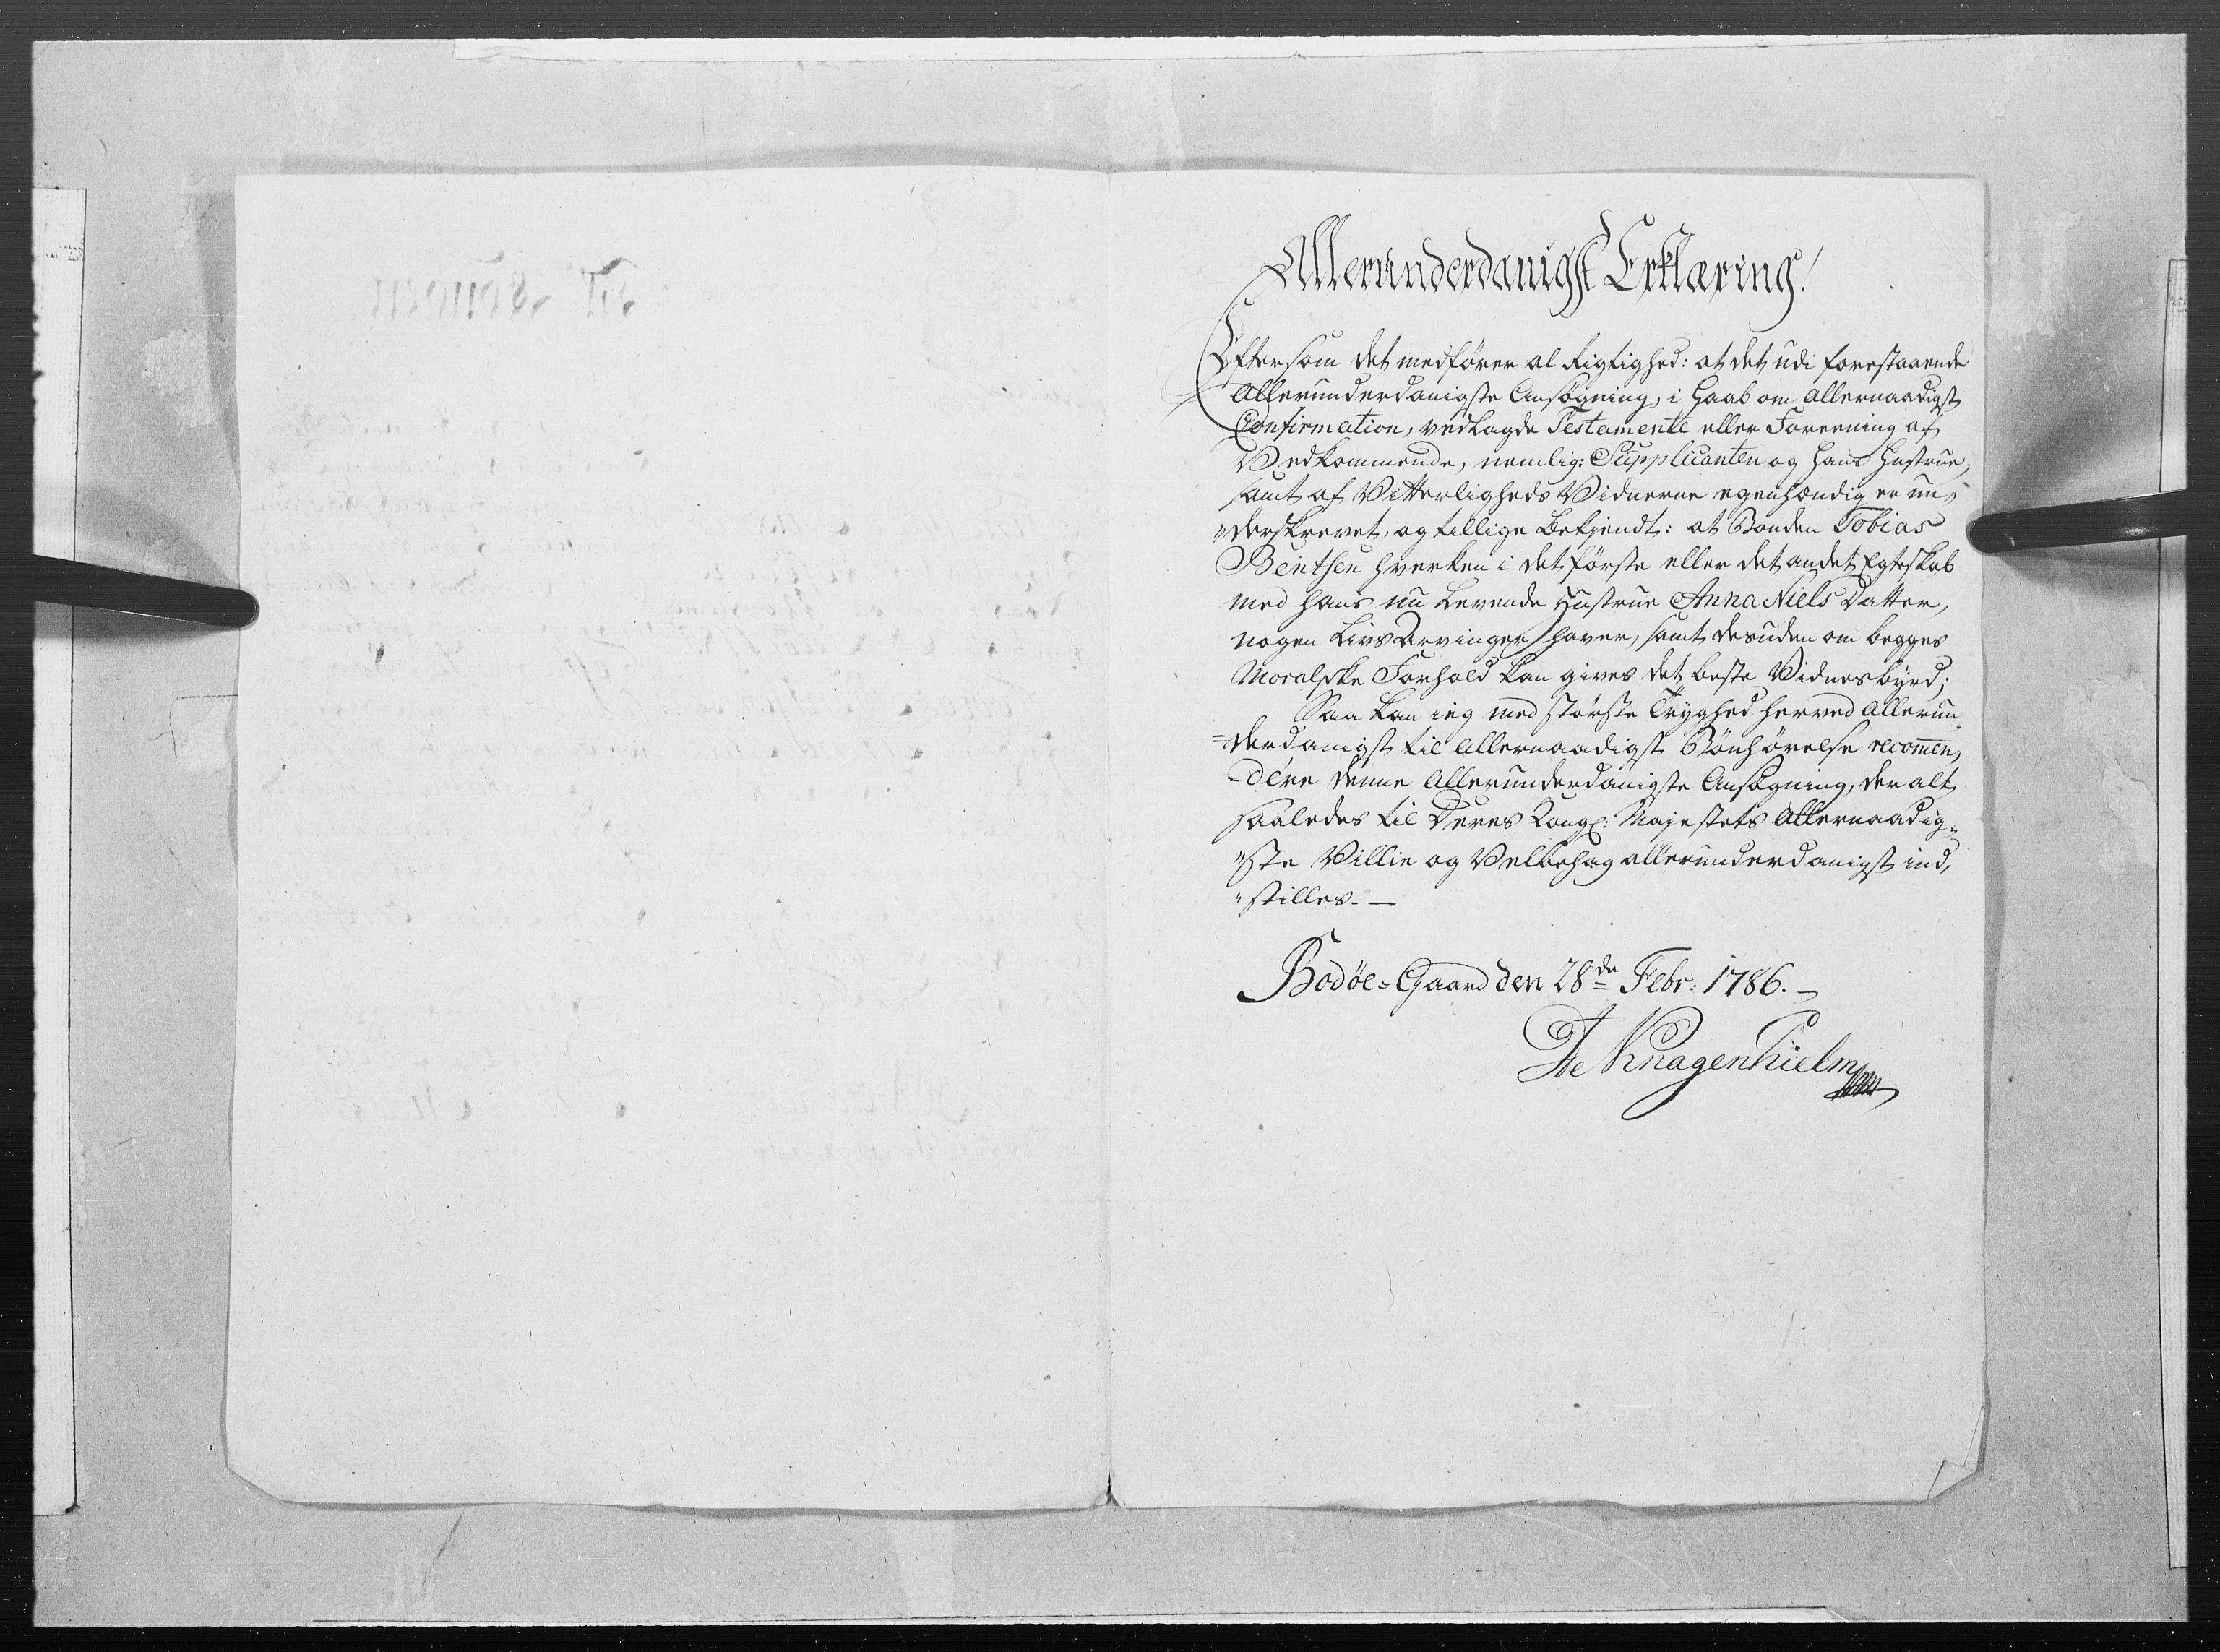 Allerunderdanigst Erklæring!
Eftersom det medfører al Rigtighed: at det udi forestaaende
Allerunderdanigste Ansøgning, i Haab om Allernaadigst
Confirmation, vedlagde Testamente eller Foreening af
Vedkommende, nemlig: Supplicanten og hans Hustrue,
samt af Vitterligheds Vidnerne egenhændig er un,
"derskrevet, og tillige bekjendt: at Bonden Tobias
Bentsen hverken i det første eller det andet Egteskab
med hans nu levende Hustrue Anna Niels Datter,
nogen Livs Arvinger haver, samt desuden om begges
Moralske Forhold kan gives det beste Vidnesbyrd;
Saa kan ieg med største Tryghed herved Allerun-
=derdanigst til Allernaadigst Bønhørelse recommen,
=dere denne Allerunderdanigste Ansøgning, der alt
saaledes til Deres Kongl: Majestets Allernaadig-
"ste Villie og Velbehag allerunderdanigst ind,
"stilles. —
Bodøe=Gaard den 28de Febr: 1786. —
Knagenhielm